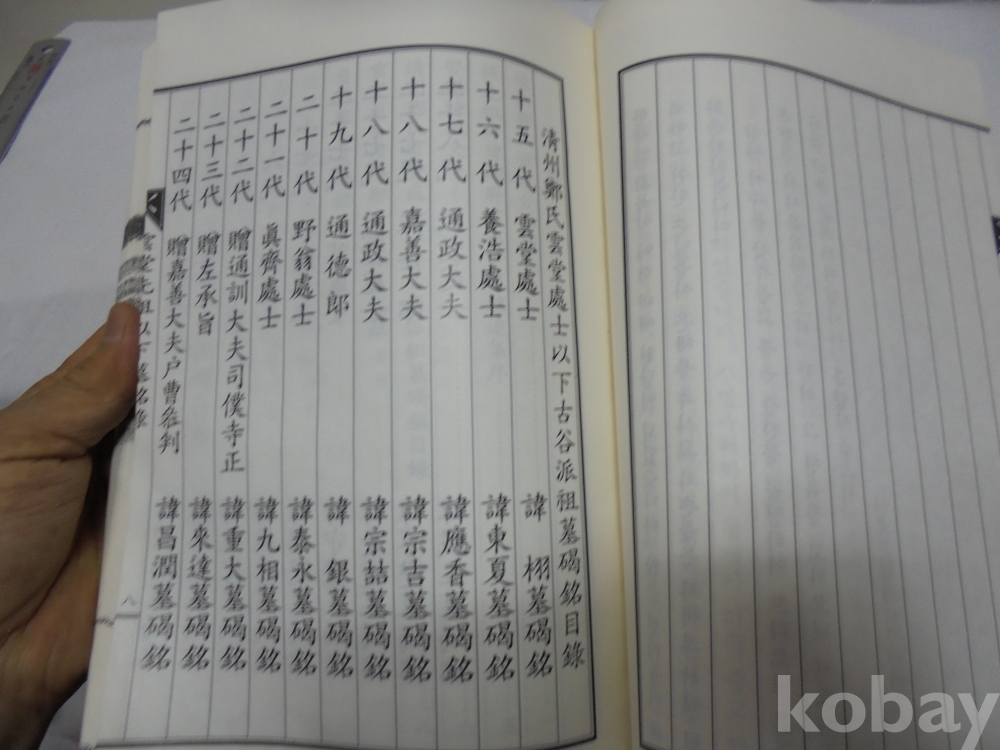 淸州鄭氏雲堂處士以下古谷派祖墓碣銘目錄
十五代 雲堂處士 諱 栩墓碣銘
十六代 養浩處士 諱東夏墓碣銘
十七代 通政大夫 諱應香墓碣銘
十八代 嘉善大夫 諱宗吉墓碣銘
十八代 通政大夫 諱宗喆墓碣銘
十九代 通德郞 諱 銀墓碣銘
二十代 野翁處士 諱泰永墓碣銘
二十一代 眞齊處士 諱九相墓碣銘
二十二代 贈通訓大夫司僕寺正 諱重大墓碣銘
二十三代 贈左承旨 諱來達墓碣銘
二十四代 贈嘉善大夫戶曹參判 諱昌潤墓碣銘
雲堂先祖以下墓銘錄
八
kobay